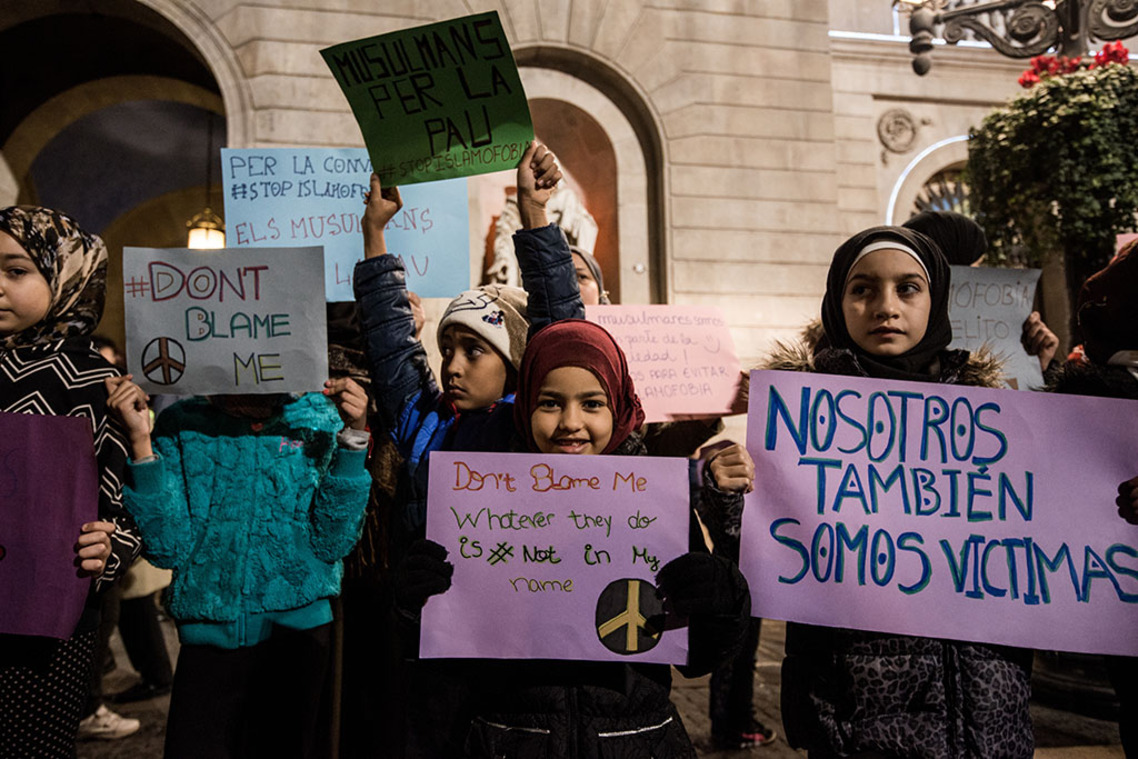 MUSULMANS
PER LA
PAU
#STOPISLAMOFOBIA
PER LA
#STOP
ELS MUSULMANS
#DON'T
BLAME
ME
musulmanes somos
parte de la
PARA EVITAR
Don't Blame Me
Whatever they do
is # Not in My
name
NOSOTROS
TAMBIÉN
SOMOS VICTIMAS